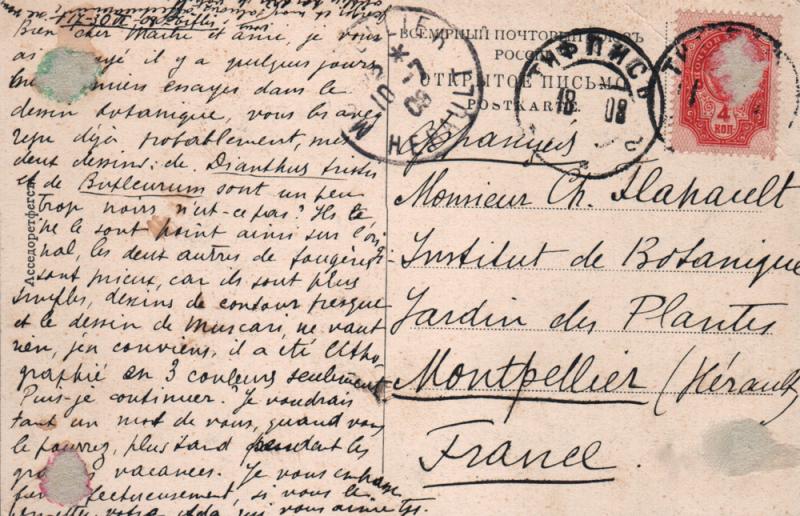 1/17-30 IX 08 Tiflis
Bien cher Maître et ami, je vous
ai il y a quelques jours
essais dans le
dessin botanique, vous l'avez
reçu déjà probablement, mes
deux dessins: de Dianthus
et de Bupleurum sont un peu
trop noirs n'est-ce pas? Ils
ne le sont point ainsi sur l'origi-
nal, les deux autres de fougères
sont mieux, car ils sont plus
simples, dessins de contour presque
et le dessin de Muscari, ne vaut
rien, j'en conviens, il a été litho
graphié en 3 couleurs seulement
Puis-je continuer? Je voudrais
tant un mot de vous, quand vous
le pourrez, plus tard pendant les
vacances. Je vous embrasse
affectueusement, si vous le
permettez votre Ada qui vous aime
ВСЕМІРНЫЙ ПОЧТОВЫЙ СОЮЗЪ
РОССІЯ
ОТКРЫТОЕ ПИСЬМО
POSTKARTE
MONTPELLIER
HERAULT
10
7
08
ТИФЛИСЪ
18
08
4
КОП
Français
Monsieur Ch. Flahault
Institut de Botanique
Jardin des Plantes
Montpellier (Hérault)
France